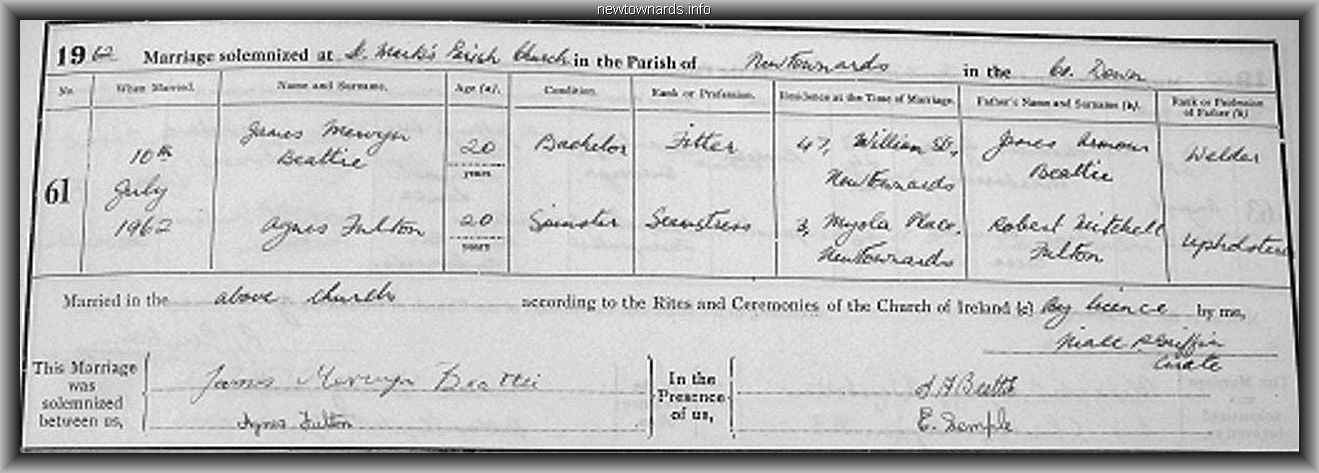 newtownards.info
1962 Marriage solemnized at St. Mark's Parish Church in the Parish of Newtownards in the Co. Down
No. When Married. Name and Surname. Age (a). Condition. Rank or Profession. Residence at the Time of Marriage. Father's Name and Surname (b). Rank or Profession of Father (b)
61 10th July 1962
James Mervyn Beattie 20 years Bachelor Fitter 47, William St., Newtownards James Armour Beattie Welder
Agnes Fulton 20 years Spinster Seamstress 3, Myola Place, Newtownards Robert Mitchell Fulton Upholsterer
Married in the above church according to the Rites and Ceremonies of the Church of Ireland (c) By licence by me,
Niall P. Griffin
Curate
This Marriage was solemnized between us,
James Mervyn Beattie
Agnes Fulton
In the Presence of us,
J A Beattie
E. Temple